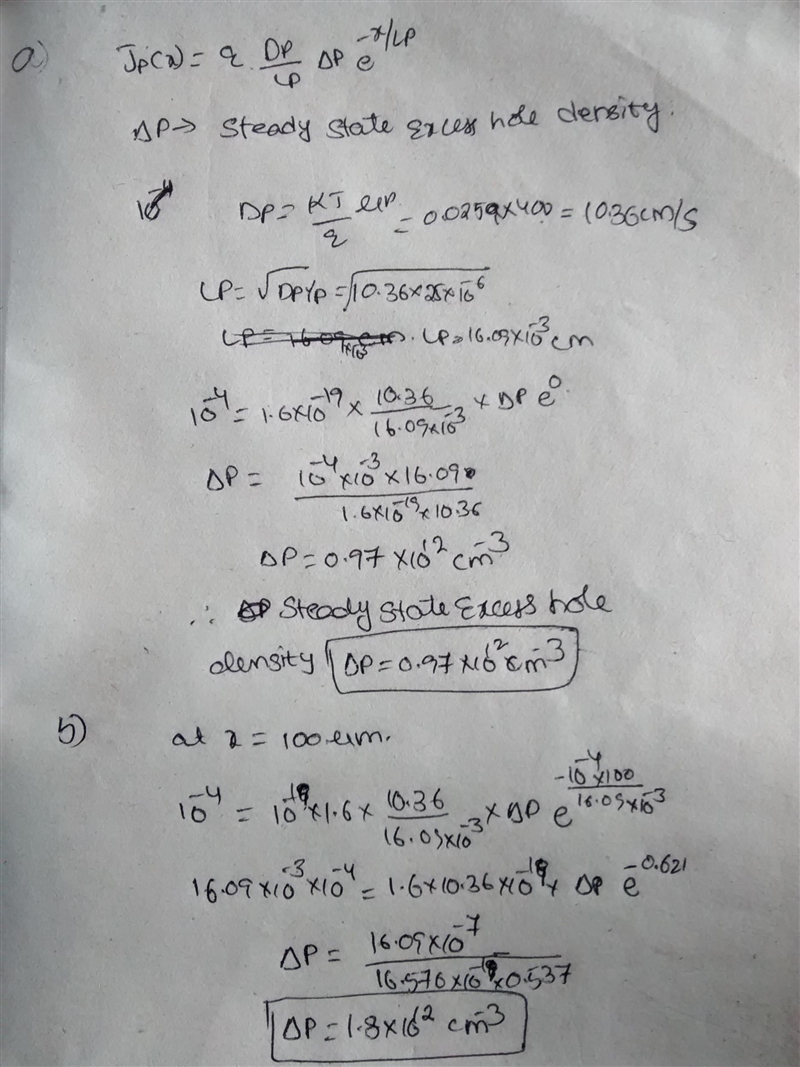 a) Jp(x) = q Dp/Lp ΔP e^{-x/Lp}
ΔP → Steady State Excess hole density.
10^{-4} DP = KT/q μP = 0.0259×400 = 10.36 cm/s
LP = √DPγP = √10.36×25×10^{-6}
LP = 16.09 cm ×10^{-3} . LP = 16.09×10^{-3} cm
10^{-4} = 1.6×10^{-19} × 10.36/16.09×10^{-3} × ΔP e^{0}
ΔP = 10^{-4}×10^{-3}×16.09/1.6×10^{-19}×10.36
ΔP = 0.97 ×10^{12} cm^{-3}
∴ ΔP Steady State Excess hole
density ΔP = 0.97 ×10^{12} cm^{-3}
b) at x = 100 μm.
10^{-4} = 10^{-19}×1.6× 10.36/16.09×10^{-3} × ΔP e^{-10^{-4}×100/16.09×10^{-3}}
16.09×10^{-3}×10^{-4} = 1.6×10.36×10^{-19}× ΔP e^{-0.621}
ΔP = 16.09×10^{-7}/16.576×10^{-19}×0.537
ΔP = 1.8×10^{12} cm^{-3}